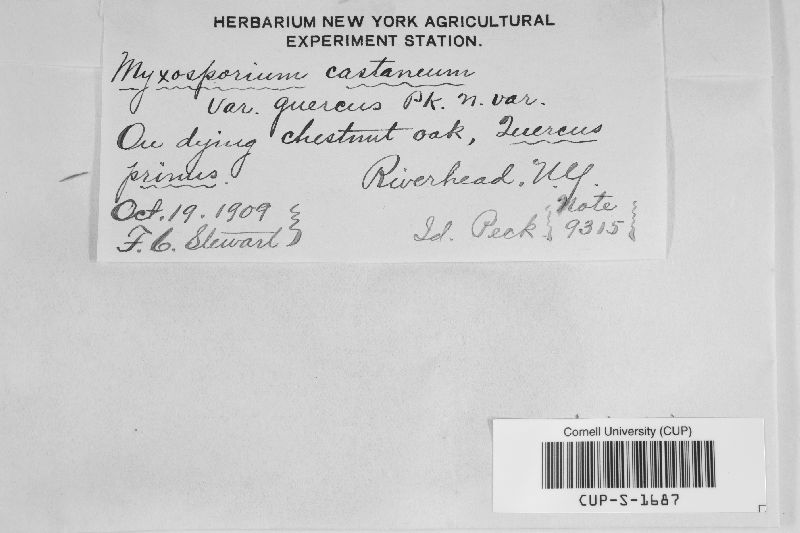 HERBARIUM NEW YORK AGRICULTURAL
EXPERIMENT STATION.
Myxosporium castaneum
Var. quercus Pk. n. var.
On dying chestnut oak, Quercus
prinus.
Riverhead, N.Y.
Oct. 19. 1909
F. C. Stewart
Id. Peck
Note
9315
Cornell University (CUP)
CUP-S-1687